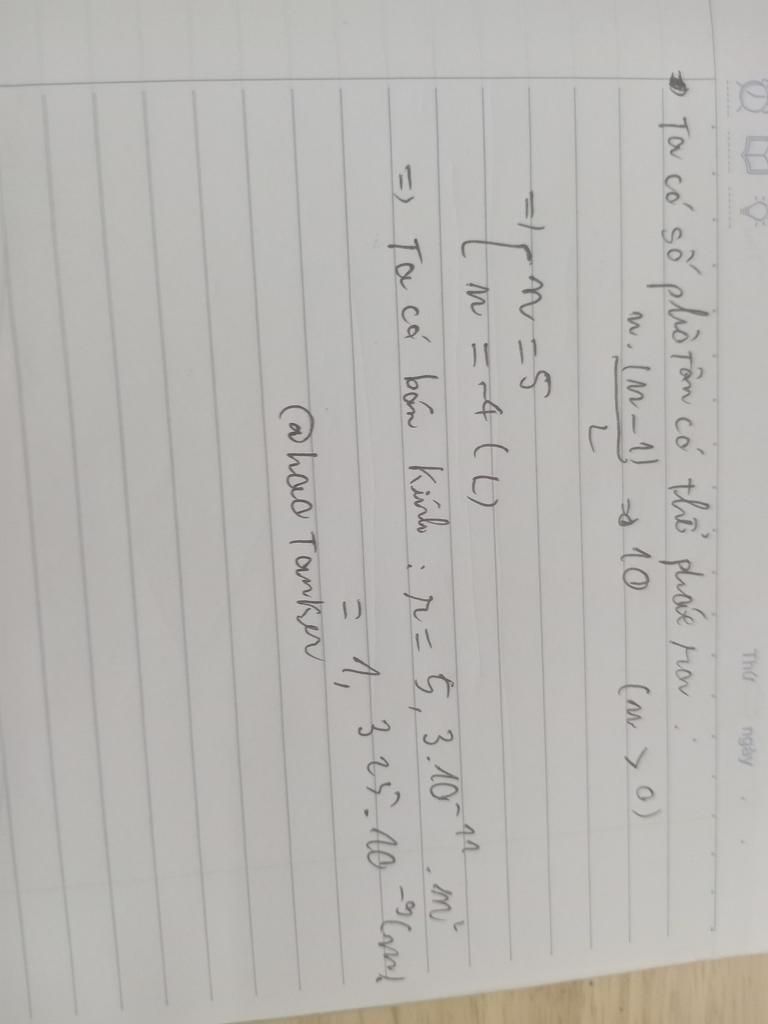 Thứ ngày . .
Ta có số phô tân có thể phát ra :
n.(n-1)/2 => 10 (n > 0)
=> [ n = 5
n = -4 (L)
=> Ta có bán kính : r = 5,3.10⁻¹¹.n²
= 1,325.10⁻⁹(m)
@hao Tanker